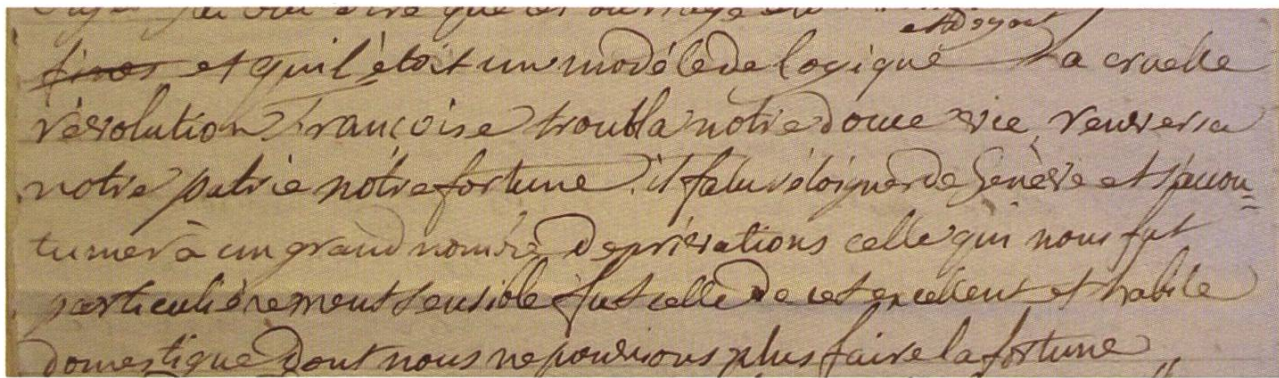 que cet ouvrage
et qu'il étoit un modéle de logique La cruelle
révolution Françoise troubla notre douce vie, renversa
notre patrie nôtre fortune. il falut s'éloigner de Genève et s'accou=
tumer à un grand nombre de privations celle qui nous fut
particulièrement sensible fut celle de cet excellent et habile
domestique dont nous ne pouvions plus faire la fortune